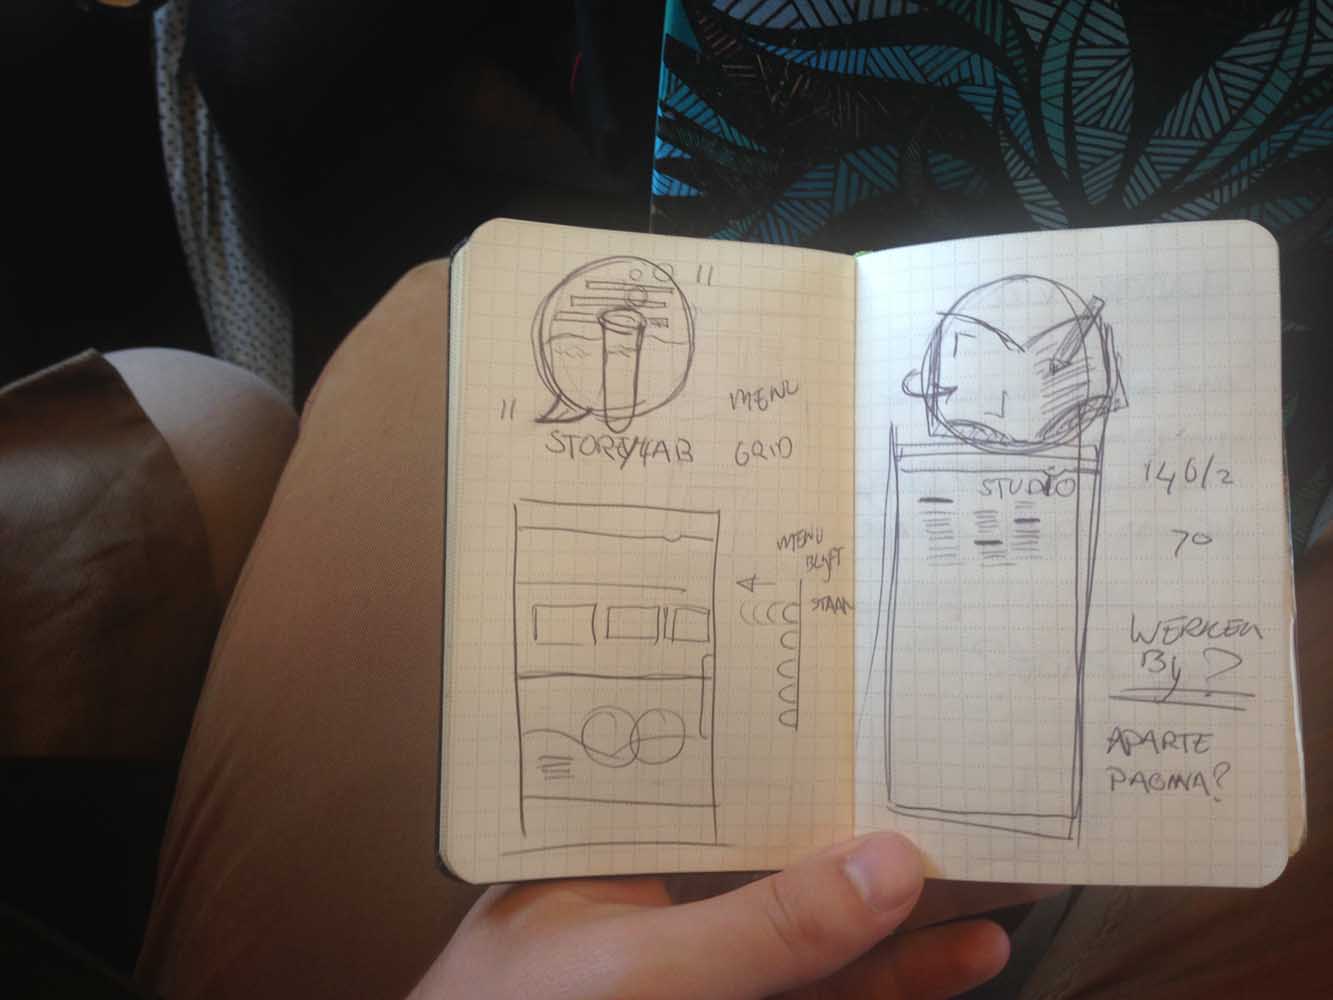 STORYLAB
MENU
GRID
MENU
BLYFT
STAAN
STUDIO
146/2
70
WERKEN
By?
APARTE
PAGINA?